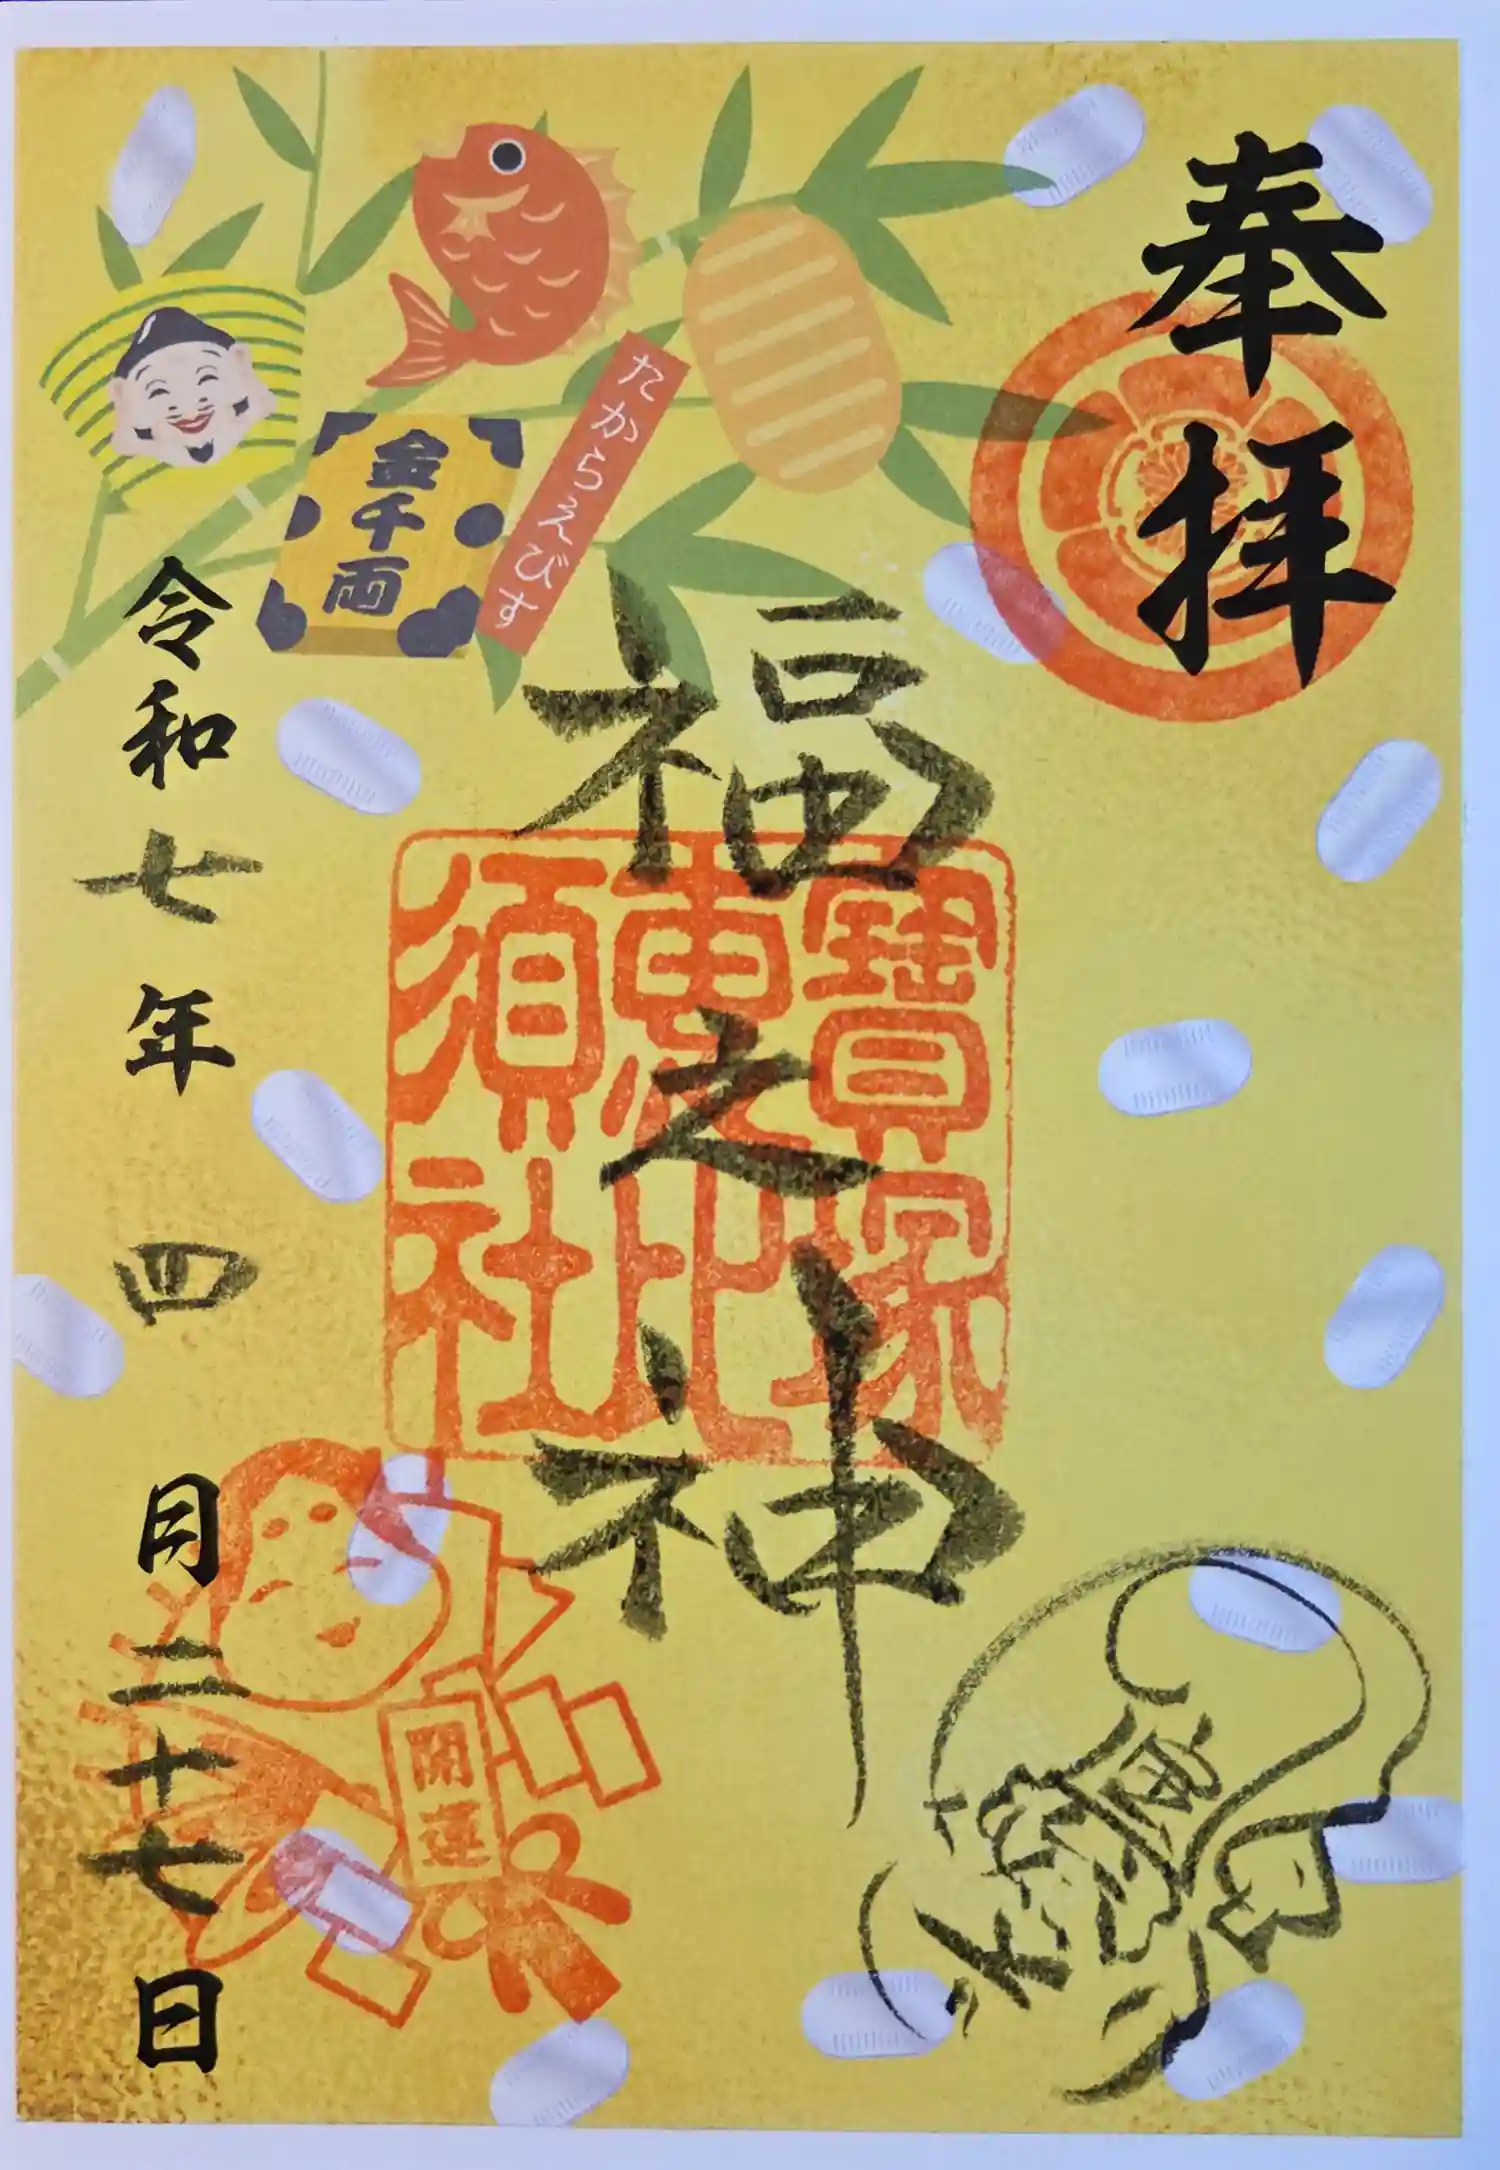 奉拝
福之神
寶塚
恵比
須社
たからえびす
金千両
開運
令和七年四月二十七日